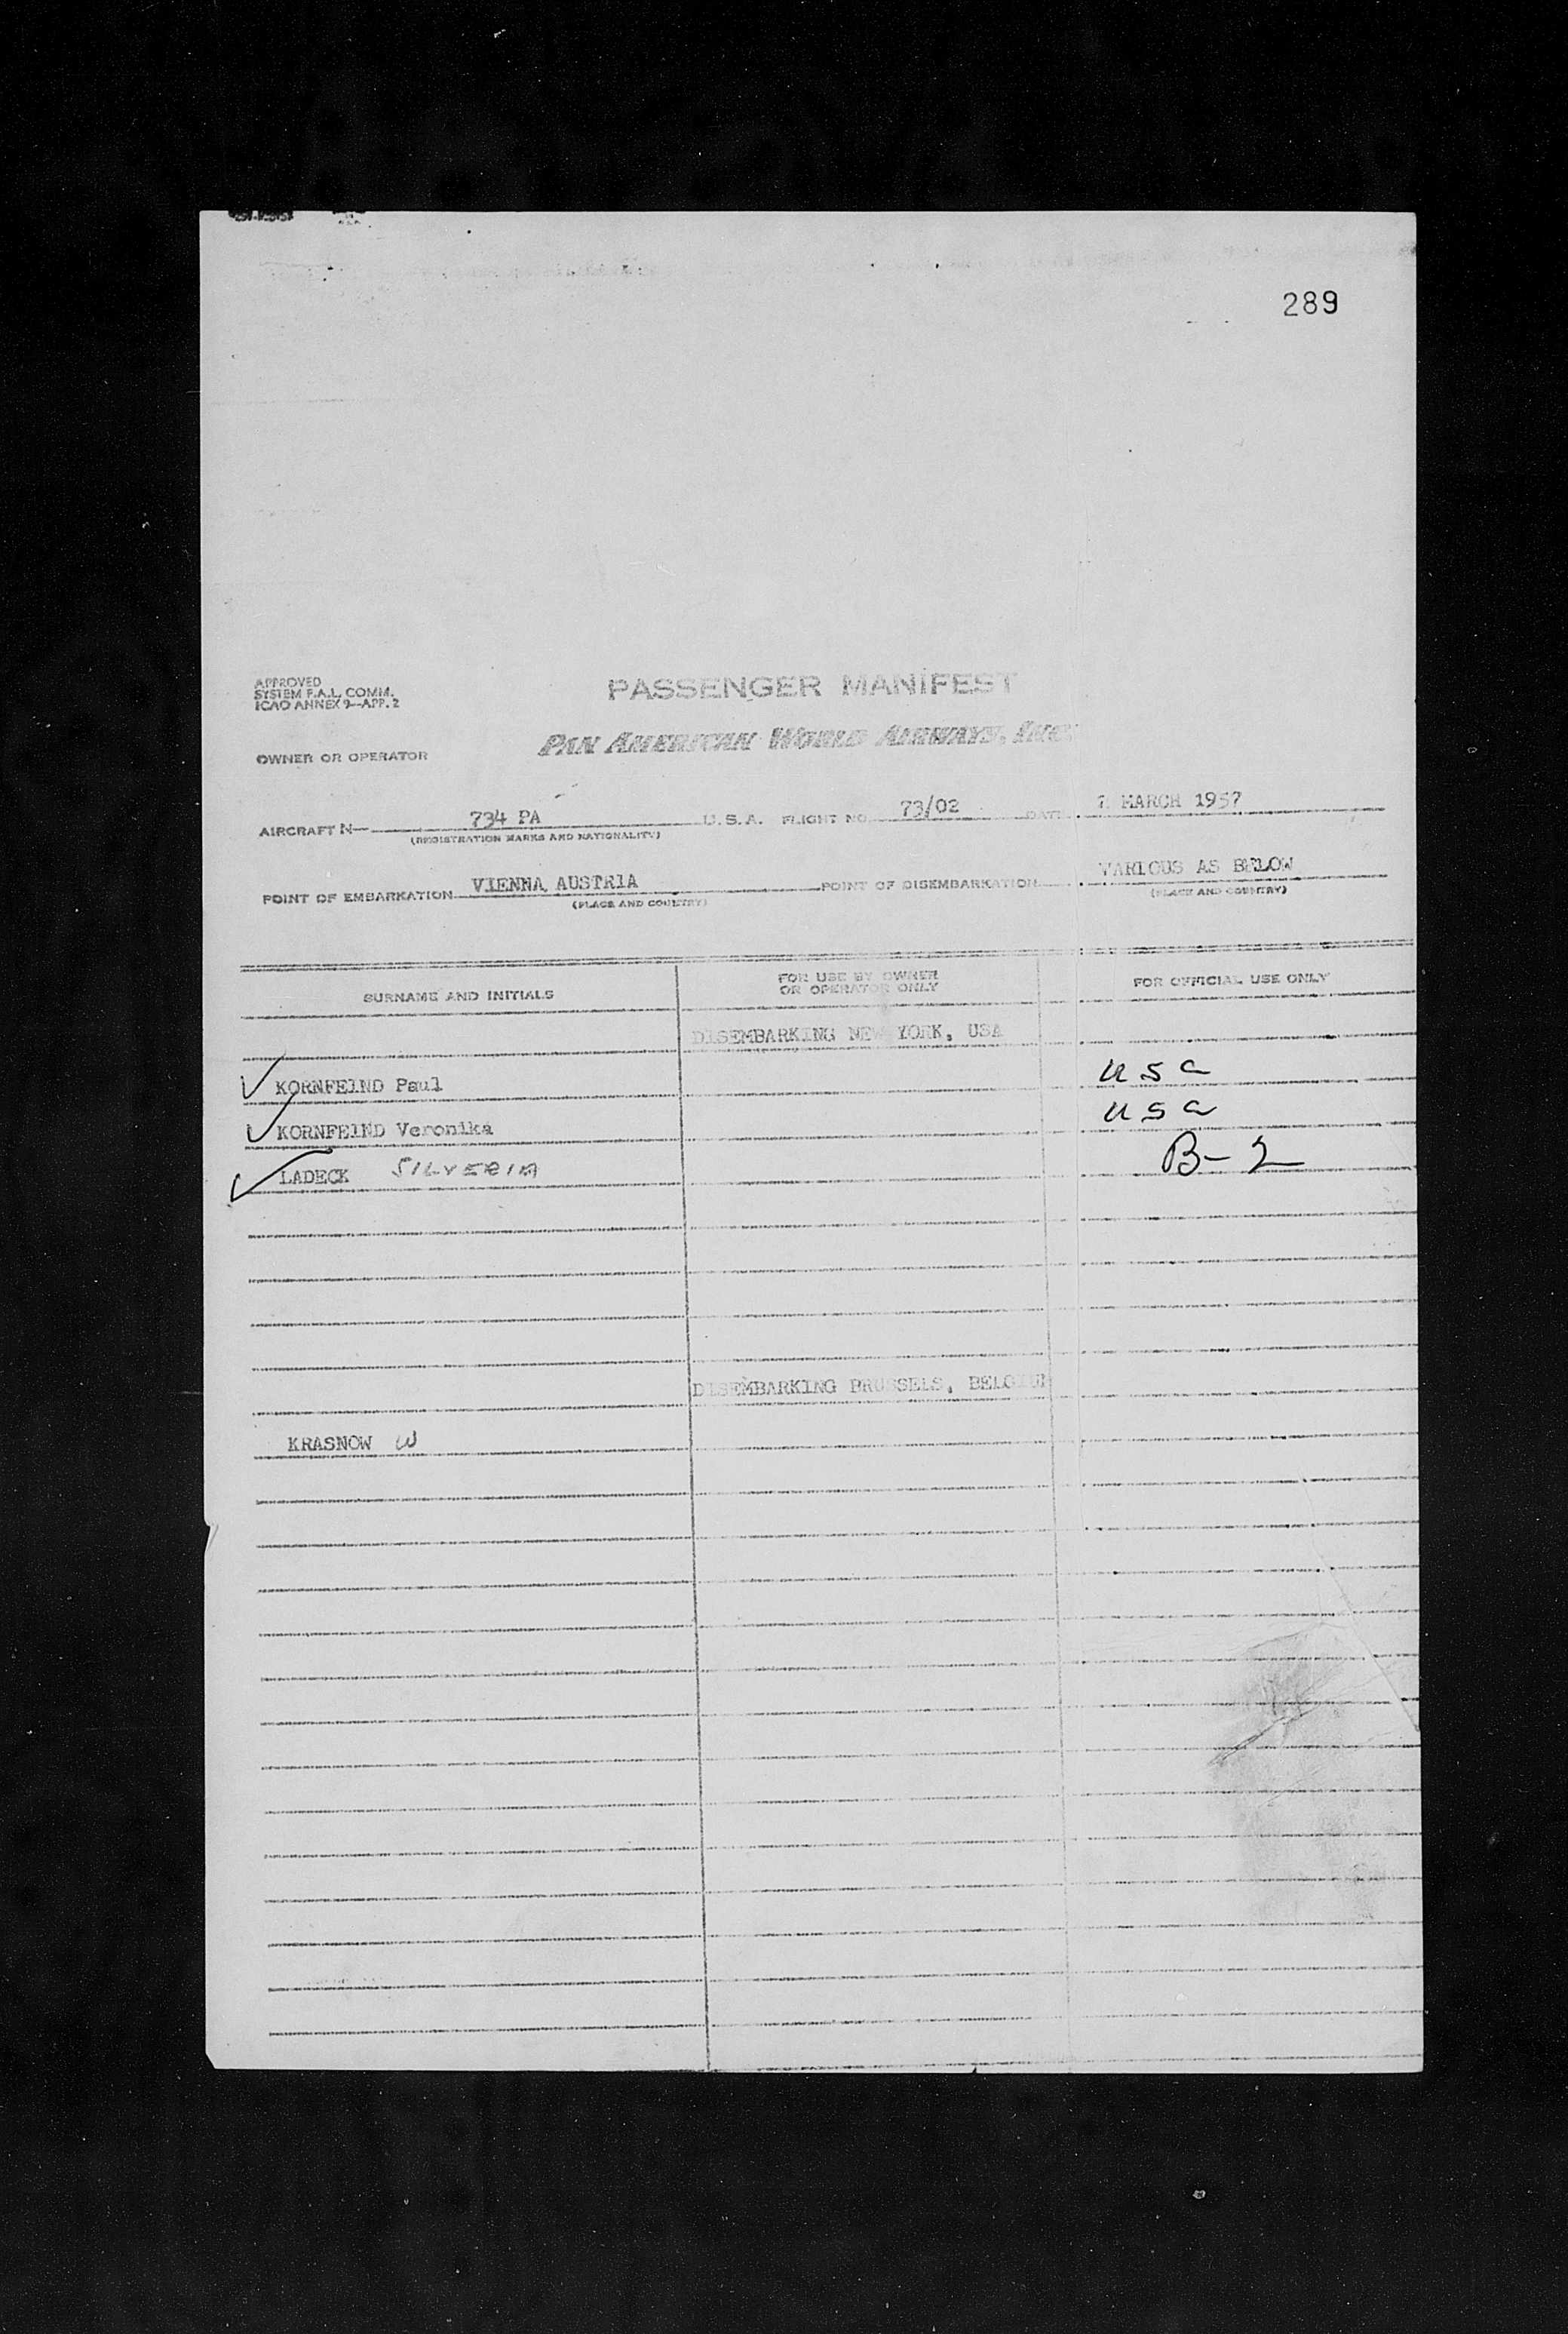 289
APPROVED
SYSTEM F.A.L. COMM.
ICAO ANNEX 9—APP. 2
PASSENGER MANIFEST
OWNER OR OPERATOR PAN AMERICAN WORLD AIRWAYS, INC.
AIRCRAFT N— 734 PA U.S.A. FLIGHT NO. 73/02 DATE 7 MARCH 1957
(REGISTRATION MARKS AND NATIONALITY)
POINT OF EMBARKATION VIENNA, AUSTRIA POINT OF DISEMBARKATION VARIOUS AS BELOW
(PLACE AND COUNTRY) (PLACE AND COUNTRY)
SURNAME AND INITIALS FOR USE BY OWNER OR OPERATOR ONLY FOR OFFICIAL USE ONLY
DISEMBARKING NEW YORK, USA
KORNFEIND Paul USA
KORNFEIND Veronika USA
LADECK B-2
DISEMBARKING BRUSSELS, BELGIUM
KRASNOW W